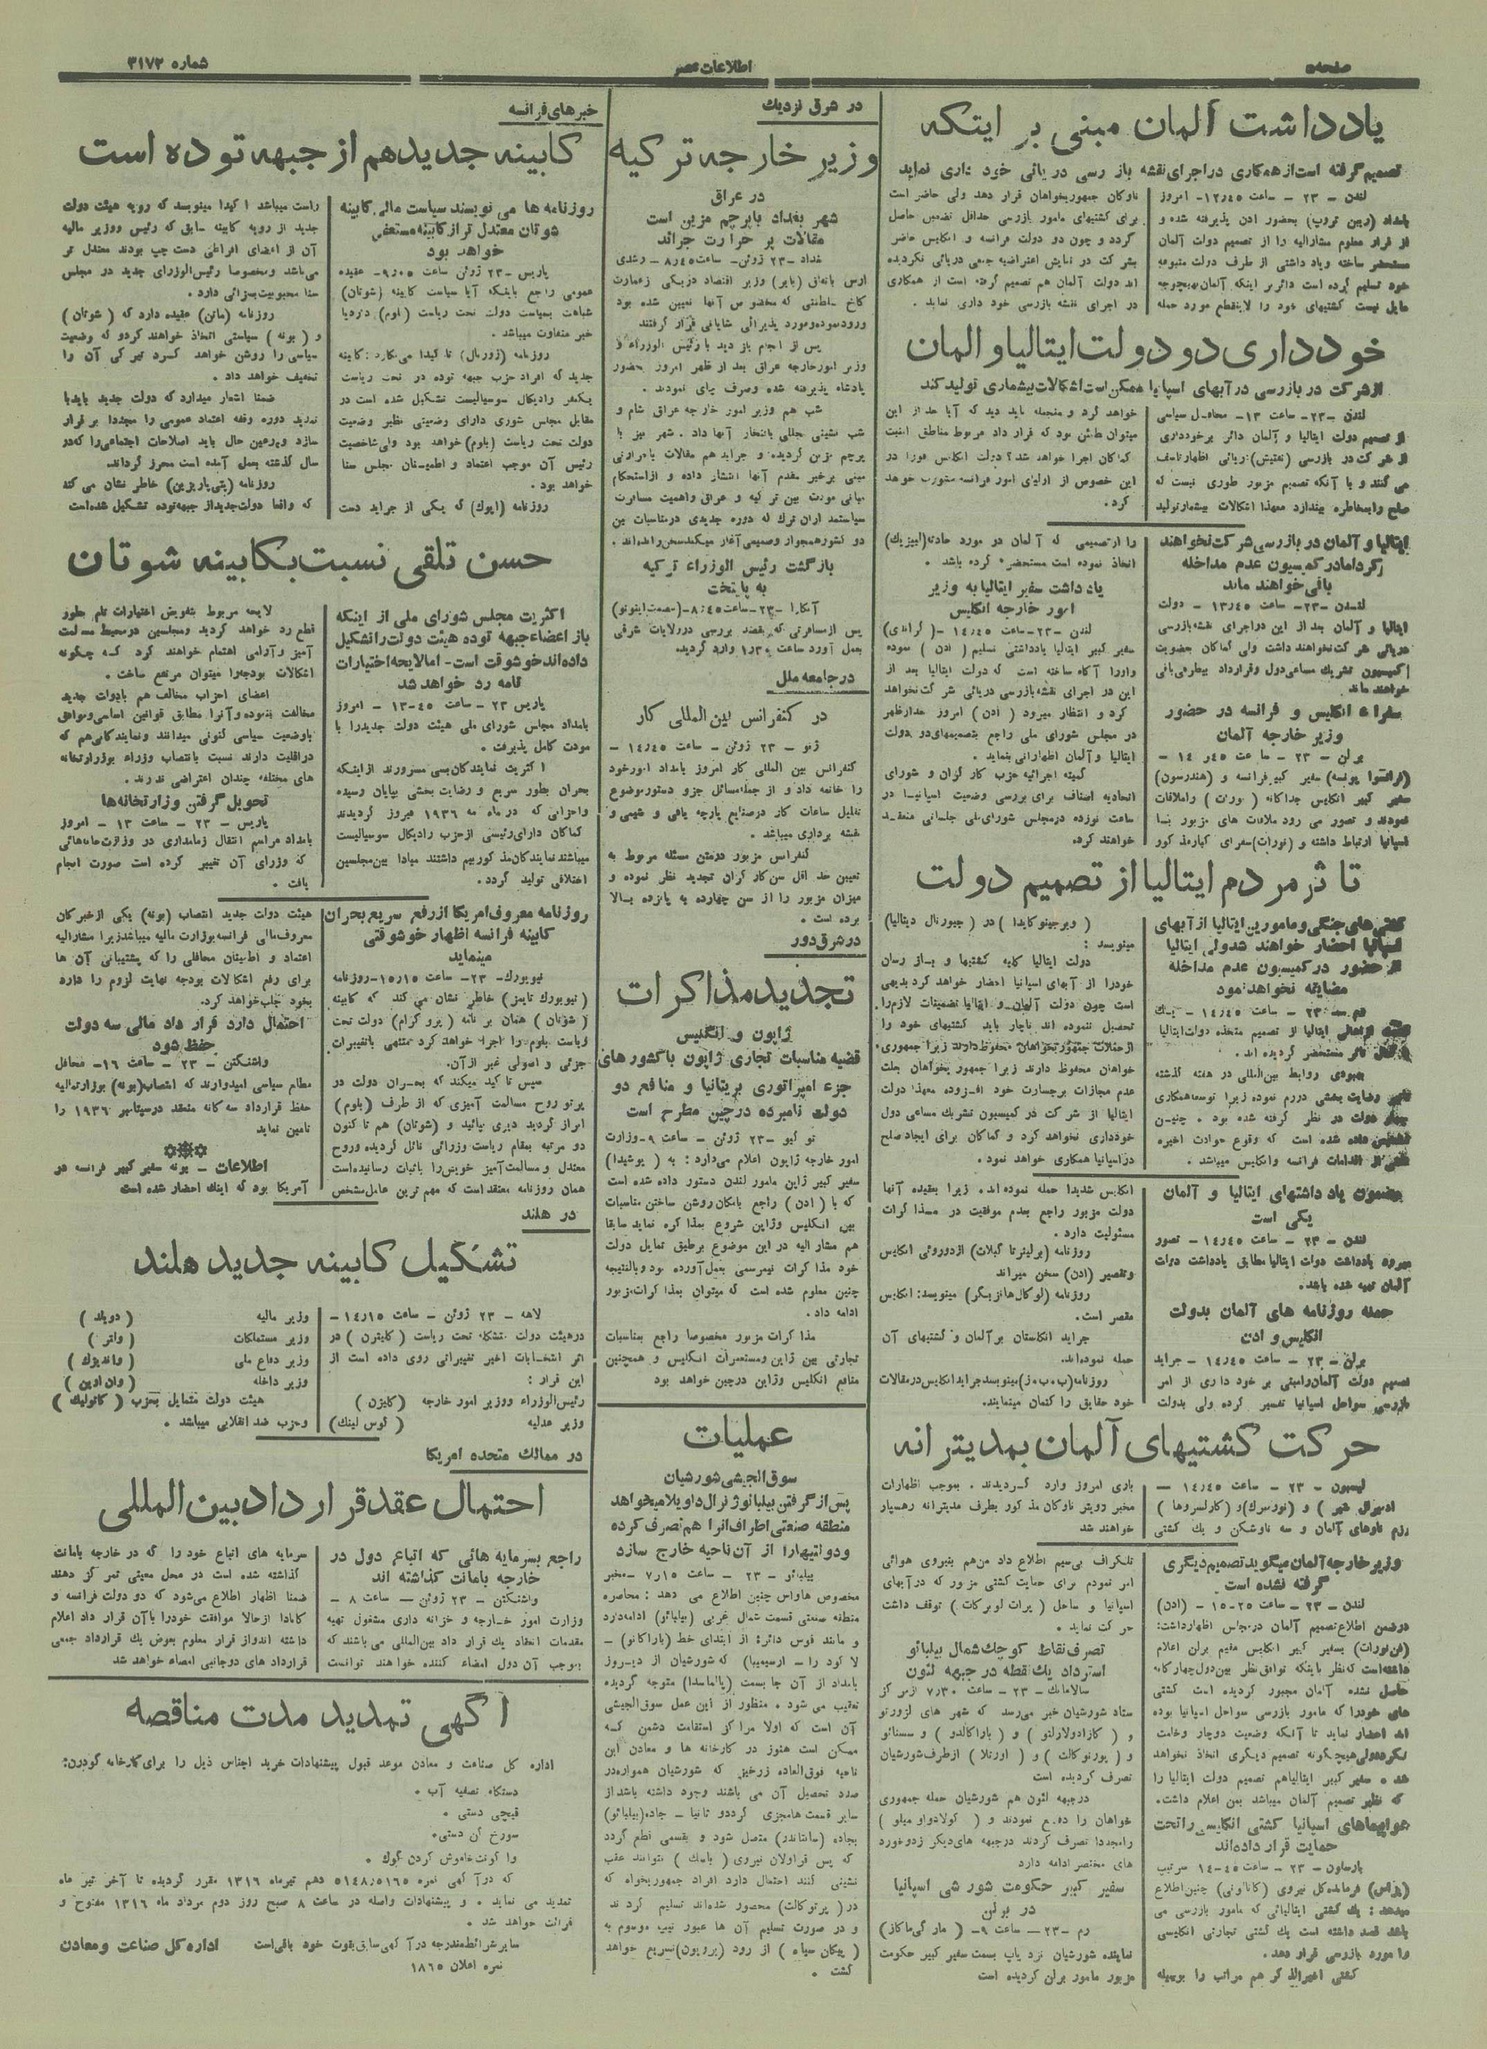 صفحه ۵
اطلاعات عصر
شماره ۳۱۷۳
یادداشت آلمان مبنی بر اینکه
تصمیم گرفته است از همکاری در اجرای نقشه بازرسی دریائی خود داری نماید
لندن - ۲۳ - ساعت ۱۲٫۴۵ - امروز
بامداد (ربن تروپ) بحضور ادن پذیرفته شده و
از قرار معلوم مشارالیه را از تصمیم دولت آلمان
مستحضر ساخته و یاد داشتی از طرف دولت متبوعه
خود تسلیم کرده است دائر بر اینکه آلمان بهیچوجه
مایل نیست کشتیهای خود را لاینقطع مورد حمله
ناوکان جمهوریخواهان قرار دهد ولی حاضر است
برای کشتیهای مامور بازرسی حداقل تضمین حاصل
گردد و چون دو دولت فرانسه و انگلیس حاضر
بشرکت در نمایش اعتراضیه جمعی دریائی نگردیده
اند دولت آلمان هم تصمیم گرفته است از همکاری
در اجرای نقشه بازرسی خود داری نماید .
خودداری دو دولت ایتالیا و المان
از شرکت در بازرسی در آبهای اسپانیا ممکن است اشکالات بیشماری تولید کند
لندن - ۲۳ - ساعت ۱۳ - محافل سیاسی
از تصمیم دولت ایتالیا و آلمان دائر برخودداری
از شرکت در بازرسی (تفتیش) دریائی اظهار تاسف
می کنند و با آنکه تصمیم مزبور طوری نیست که
صلح را بمخاطره بیندازد معهذا اشکالات بیشمار تولید
خواهد کرد و منجمله باید دید که آیا بعد از این
میتوان مطمئن بود که قرار داد مربوط مناطق امنیت
کماکان اجرا خواهد شد؟ دولت انگلیس فورا در
این خصوص از اولیای امور فرانسه مشورت خواهد
کرد .
ایتالیا و آلمان در بازرسی شرکت نخواهند
کرد اما در کمیسیون عدم مداخله
باقی خواهند ماند
لندن - ۲۳ - ساعت ۱۳٫۴۵ - دولت
ایتالیا و آلمان بعد از این در اجرای نقشه بازرسی
دریائی شرکت نخواهند داشت ولی کماکان بعضویت
کمیسیون تشریک مساعی دول و قرارداد بیطرفی باقی
خواهند ماند.
سفراء انگلیس و فرانسه در حضور
وزیر خارجه آلمان
برلن - ۲۳ - ساعت ۱۴٫۴۵ -
(فرانسوا پونسه) سفیر کبیر فرانسه و (هندرسون)
سفیر کبیر انگلیس جداگانه (نورات) را ملاقات
نمودند و تصور می رود ملاقات های مزبور با
اسپانیا ارتباط داشته و (نورات) سفرای کبار مذکور
را از تصمیمی که آلمان در مورد حادثه (لیپزیک)
اتخاذ نموده است مستحضر کرده باشد .
یادداشت سفیر ایتالیا به وزیر
امور خارجه انگلیس
لندن - ۲۳ - ساعت ۱۴٫۴۵ - (گراندی)
سفیر کبیر ایتالیا یادداشتی تسلیم (ادن) نموده
و او را آگاه ساخته است که دولت ایتالیا بعد از
این در اجرای نقشه بازرسی دریائی شرکت نخواهد
کرد و انتظار میرود (ادن) امروز بعد از ظهر
در مجلس شورای ملی راجع بتصمیمهای دو دولت
ایتالیا و آلمان اظهاراتی بنماید .
کمیته اجرائیه حزب کارگران و شورای
اتحادیه اصناف برای بررسی وضعیت اسپانیا در
ساعت نوزده در مجلس شورای ملی جلساتی منعقد
خواهند کرد.
تاثر مردم ایتالیا از تصمیم دولت
کشتی های جنگی و مامورین ایتالیا از آبهای
اسپانیا احضار خواهند شد ولی ایتالیا
از حضور در کمیسیون عدم مداخله
مضایقه نخواهد نمود
رم - ۲۳ - ساعت ۱۴٫۴۵ -
مستحضر گردیده اند.
بهبودی روابط بین المللی در هفته گذشته
رضایت بخشی در رم نموده زیرا توسعه همکاری
چهار دولت در نظر گرفته شده بود . چنین
داده شده است که وقوع حوادث اخیره
از اقدامات فرانسه و انگلیس میباشد .
(ویرجینو گایدا) در (جیورنال دیتالیا)
مینویسد :
دولت ایتالیا کلیه کشتیها و بازرسان
خود را از آبهای اسپانیا احضار خواهد کرد بدیهی
است چون دولت آلمان و ایتالیا تضمینات لازم را
تحصیل ننموده اند ناچار باید کشتیهای خود را
از حملات جمهوریخواهان محفوظ دارند زیرا جمهوری
خواهان محفوظ دارند زیرا جمهوریخواهان بعلت
عدم مجازات برجسارت خود افزوده معهذا دولت
ایتالیا از شرکت در کمیسیون تشریک مساعی دول
خودداری نخواهد کرد و کماکان برای ایجاد صلح
در اسپانیا همکاری خواهد نمود .
مضمون یادداشتهای ایتالیا و آلمان
یکی است
لندن - ۲۳ - ساعت ۱۴٫۴۵ - تصور
میرود یادداشت دولت ایتالیا مطابق یادداشت دولت
آلمان تهیه شده باشد.
حمله روزنامه های آلمان بدولت
انگلیس و ادن
برلن - ۲۳ - ساعت ۱۴٫۴۵ - جراید
تصمیم دولت آلمان را مبنی بر خود داری از امر
بازرسی سواحل اسپانیا تفسیر کرده ولی بدولت
انگلیس شدیدا حمله نموده اند. زیرا بعقیده آنها
دولت مزبور راجع بعدم موفقیت در مذاکرات
مسئولیت دارد .
روزنامه (برلینر تاگبلات) از دوروئی انگلیس
و تقصیر (ادن) سخن میراند
روزنامه (لوکال هانزیگر) مینویسد: انگلیس
مقصر است .
جراید انگلستان بر آلمان و کشتیهای آن
حمله نموده اند.
روزنامه (ب . ب . ز) مینویسد جراید انگلیس در مقالات
خود حقایق را کتمان مینمایند.
حرکت کشتیهای آلمان بمدیترانه
لیسبون - ۲۳ - ساعت ۱۴٫۴۵ -
ادمیرال شیر) و (نورنبرک) و (کارلسروها)
رزم ناوهای آلمان و سه ناوشکن و یک کشتی
باری امروز وارد گردیدند . بموجب اظهارات
مخبر رویتر ناوگان مذکور بطرف مدیترانه رهسپار
خواهند شد
وزیر خارجه آلمان میگوید تصمیم دیگری
گرفته نشده است
لندن - ۲۳ - ساعت ۱۵٫۲۵ - (ادن)
در ضمن اطلاع تصمیم آلمان در مجلس اظهار داشت:
(فن نورات) بسفیر کبیر انگلیس مقیم برلن اعلام
داشته است که نظر باینکه توافق نظر بین دول چهارگانه
حاصل نشده آلمان مجبور گردیده است کشتی
های خود را که مامور بازرسی سواحل اسپانیا بوده
اند احضار نماید تا آنکه وضعیت دوچار وخامت
نگردد ولی هیچگونه تصمیم دیگری اتخاذ نخواهد
شد . سفیر کبیر ایتالیا هم تصمیم دولت ایتالیا را
که نظیر تصمیم آلمان میباشد بمن اعلام داشت.
هواپیماهای اسپانیا کشتی انگلیسی را تحت
حمایت قرار داده اند
بارسلون - ۲۳ - ساعت ۱۴٫۴۵ سرتیپ
فرمانده کل نیروی (کاتالونی) چنین اطلاع
میدهد : یک کشتی ایتالیائی که مامور بازرسی می
باشد قصد داشته است یک کشتی تجارتی انگلیسی
را مورد بازرسی قرار دهد.
کشتی اخیرالذکر هم مراتب را بوسیله
تلگراف بی سیم اطلاع داد من هم بنیروی هوائی
امر نمودم برای حمایت کشتی مزبور که در آبهای
اسپانیا و ساحل توقف داشت
حرکت نماید .
تصرف نقاط کوچک شمال بیلبائو
استرداد یک نقطه در جبهه لئون
سالامانک - ۲۳ - ساعت ۷٫۳۰ از مرکز
ستاد شورشیان خبر می رسد که شهر های لزورتو
و (باراکالدو) و سستائو
و (پورتوگالت) و (اورتلا) از طرف شورشیان
تصرف گردیده است
در جبهه لئون هم شورشیان حمله جمهوری
خواهان را دفع نمودند و (کولادو او میلو)
را مجددا تصرف کردند در جبهه های دیگر زد و خورد
های مختصر ادامه دارد
سفیر کبیر حکومت شورشی اسپانیا
در برلن
رم - ۲۳ - ساعت ۹ - (مارکی ماگاز)
نماینده شورشیان نزد پاپ بسمت سفیر کبیر حکومت
مزبور مامور برلن گردیده است
در شرق نزدیک
وزیر خارجه ترکیه
در عراق
شهر بغداد با پرچم مزین است
مقالات پر حرارت جرائد
بغداد - ۲۳ ژوئن - ساعت ۸٫۴۵ - رشدی
ارس باتفاق (بایر) وزیر اقتصاد در یکی از عمارت
کاخ سلطنتی که مخصوص آنها تعیین شده بود
ورود نموده و مورد پذیرائی شایانی قرار گرفتند
پس از انجام باز دید با رئیس الوزراء و
وزیر امور خارجه عراق بعد از ظهر امروز بحضور
پادشاه پذیرفته شده و صرف چای نمودند.
شب هم وزیر امور خارجه عراق شام و
شب نشینی مجللی بافتخار آنها داد . شهر نیز با
پرچم مزین گردیده و جراید هم مقالات با حرارتی
مبنی بر خیر مقدم آنها انتشار داده و از استحکام
مبانی مودت بین ترکیه و عراق و اهمیت مسافرت
سیاستمداران ترک که دوره جدیدی در مناسبات بین
دو کشور همجوار و صمیمی آغاز میکند سخن رانده اند .
بازگشت رئیس الوزراء ترکیه
به پایتخت
آنکارا - ۲۳ - ساعت ۸٫۴۵ - (عصمت اینونو)
پس از مسافرتی که بقصد بررسی در ولایات شرقی
بعمل آورد ساعت ۱٫۳۰ وارد گردید.
در جامعه ملل
در کنفرانس بین المللی کار
ژنو - ۲۳ ژوئن - ساعت ۱۴٫۴۵ -
کنفرانس بین المللی کار امروز بامداد امور خود
را خاتمه داد و از جمله مسائل جزو دستور موضوع
تقلیل ساعات کار در صنایع پارچه بافی و شیمی و
نقشه برداری میباشد .
کنفرانس مزبور در متن مسئله مربوط به
تعیین حد اقل سن کارگران تجدید نظر نموده و
میزان مزبور را از سن چهارده به پانزده بالا
برده است .
در شرق دور
تجدید مذاکرات
ژاپون و انگلیس
قضیه مناسبات تجاری ژاپون با کشور های
جزء امپراتوری بریتانیا و منافع دو
دولت نامبرده در چین مطرح است
توکیو - ۲۳ ژوئن - ساعت ۹ - وزارت
امور خارجه ژاپون اعلام میدارد : به (یوشیدا)
سفیر کبیر ژاپن مامور لندن دستور داده شده است
که با (ادن) راجع بامکان روشن ساختن مناسبات
بین انگلیس و ژاپن شروع بمذاکره نماید سابقا
هم مشارالیه در این موضوع برطبق تمایل دولت
خود مذاکرات نیمرسمی بعمل آورده بود و بالنتیجه
چنین معلوم شده است که میتوان بمذاکرات مزبور
ادامه داد.
مذاکرات مزبور مخصوصا راجع بمناسبات
تجارتی بین ژاپن و مستعمرات انگلیس و همچنین
منافع انگلیس و ژاپن در چین خواهد بود
عملیات
سوق الجیشی شورشیان
پس از گرفتن بیلبائو ژنرال داویلا میخواهد
منطقه صنعتی اطراف آنرا هم تصرف کرده
و دو تیپ آنها را از آن ناحیه خارج سازد
بیلبائو - ۲۳ - ساعت ۷٫۱۵ - مخبر
مخصوص هاواس چنین اطلاع می دهد : محاصره
منطقه صنعتی قسمت شمال غربی (بیلبائو) ادامه دارد
و مانند قوس دائره از ابتدای خط (باراکالدو) -
شورشیان از دیروز
بامداد از آن جا بسمت (بالماسدا) متوجه گردیده
تعقیب می شود . منظور از این عمل سوق الجیشی
آن است که اولا مراکز استقامت دشمن که
ممکن است هنوز در کارخانه ها و معادن این
ناحیه فوق العاده زرخیز که شورشیان همواره در
صدد تحصیل آن می باشند وجود داشته باشد از
سایر قسمت ها مجزی گردد و ثانیا - جاده (بیلبائو)
بجاده (سانتاندر) متصل شود و بقسمی قطع گردد
که پس قراولان نیروی (باسک) نتوانند عقب
نشینی کنند احتمال دارد افراد جمهوریخواه که
در (پرتوگالت) محصور شده اند تسلیم گردند
و در صورت تسلیم آن ها عبور تیپ موسوم به
(پیکان سیاه) از رود (نرویون) تسریع خواهد
گشت .
خبر های فرانسه
کابینه جدید هم از جبهه توده است
روزنامه ها می نویسند سیاست مالی کابینه
شوتان معتدل تر از کابینه مستعفی
خواهد بود
پاریس - ۲۳ ژوئن ساعت ۹٫۰۵ - عقیده
عمومی راجع باینکه آیا سیاست کابینه (شوتان)
شباهت بسیاست دولت تحت ریاست (بلوم) دارد یا
خیر متفاوت میباشد .
روزنامه (ژورنال) تاکیدا می نگارد: کابینه
جدید که افراد حزب جبهه توده در تحت ریاست
یکنفر رادیکال سوسیالیست تشکیل شده است در
مقابل مجلس شوری دارای وضعیتی نظیر وضعیت
دولت تحت ریاست (بلوم) خواهد بود ولی شخصیت
رئیس آن موجب اعتماد و اطمینان مجلس سنا
خواهد بود .
روزنامه (اپوک) که یکی از جراید دست
راست میباشد اکیدا مینویسد که رویه هیئت دولت
جدید از رویه کابینه سابق که رئیس و وزیر مالیه
آن از اعضای افراطی دست چپ بودند معتدل تر
می باشد و مخصوصا رئیس الوزرای جدید در مجلس
سنا محبوبیت بسزائی دارد .
روزنامه (ماتن) عقیده دارد که (شوتان)
و (بونه) سیاستی اتخاذ خواهند کرد که وضعیت
سیاسی را روشن خواهد کرد تیرگی آن را
تخفیف خواهد داد .
ضمنا اشعار میدارد که دولت جدید باید با
تمدید دوره وقفه اعتماد عمومی را مجددا برقرار
سازد و در عین حال باید اصلاحات اجتماعی را که در
سال گذشته بعمل آمده است محرز گرداند.
روزنامه (پتی پاریزین) خاطر نشان می کند
که واقعا دولت جدید از جبهه توده تشکیل شده است
حسن تلقی نسبت بکابینه شوتان
اکثریت مجلس شورای ملی از اینکه
باز اعضاء جبهه توده هیئت دولت را تشکیل
داده اند خوشوقت است - اما لایحه اختیارات
تامه رد خواهد شد
پاریس ۲۳ - ساعت ۱۳٫۴۵ - امروز
بامداد مجلس شورای ملی هیئت دولت جدید را با
مودت کامل پذیرفت .
اکثریت نمایندگان بسی مسرورند از اینکه
بحران بطور سریع و رضایت بخشی بپایان رسیده
و احزابی که در ماه مه ۱۹۳۶ فیروز گردیدند
کماکان دارای رئیسی از حزب رادیکال سوسیالیست
میباشند نمایندگان مذکور بیم داشتند مبادا بین مجلسین
اختلافی تولید گردد.
لایحه مربوط بتفویض اختیارات تام بطور
قطع رد خواهد گردید و مجلسین در محیط مسالمت
آمیز و آرامی اهتمام خواهند کرد که چگونه
اشکالات بودجه را میتوان مرتفع ساخت .
اعضای احزاب مخالف هم با دولت جدید
مخالفت ننموده و آنرا مطابق قوانین اساسی و موافق
با وضعیت سیاسی کنونی میدانند و نمایندگانی هم که
در اقلیت دارند نسبت بانتصاب وزراء بوزارتخانه
های مختلفه چندان اعتراضی ندرند.
تحویل گرفتن وزارتخانه ها
پاریس - ۲۳ - ساعت ۱۳ - امروز
بامداد مراسم انتقال زمامداری در وزارت خانه هائی
که وزرای آن تغییر کرده است صورت انجام
یافت .
روزنامه معروف امریکا از رفع سریع بحران
کابینه فرانسه اظهار خوشوقتی
مینماید
نیویورک - ۲۳ - ساعت ۱۵٫۱۵ - روزنامه
(نیویورک تایمز) خاطر نشان می کند که کابینه
(شوتان) همان برنامه (پروگرام) دولت تحت
ریاست بلوم را اجرا خواهد کرد منتهی باتغییرات
جزئی و اصولی غیر از آن.
سپس تاکید میکند که بحران دولت در
پرتو روح مسالمت آمیزی که از طرف (بلوم)
ابراز گردید دیری نپائید و (شوتان) هم تاکنون
دو مرتبه بمقام ریاست وزرائی نائل گردیده و روح
معتدل و مسالمت آمیز خویش را باثبات رسانیده است
همان روزنامه معتقد است که مهم ترین عامل مشخص
هیئت دولت جدید انتصاب (بونه) یکی از خبرگان
معروف مالی فرانسه بوزارت مالیه میباشد زیرا مشارالیه
اعتماد و اطمینان محافلی را که پشتیبانی آن ها
برای رفع اشکالات بودجه نهایت لزوم را دارد
بخود جلب خواهد کرد.
احتمال دارد قرار داد مالی سه دولت
حفظ شود
واشنگتن - ۲۳ - ساعت ۱۶ - محافل
مطلع سیاسی امیدوارند که انتصاب (بونه) بوزارت مالیه
حفظ قرارداد سه گانه منعقد در سپتامبر ۱۹۳۶ را
تامین نماید
اطلاعات - بونه سفیر کبیر فرانسه در
آمریکا بود که اینک احضار شده است
در هلند
تشکیل کابینه جدید هلند
لاهه - ۲۳ ژوئن - ساعت ۱۴٫۱۵ -
در هیئت دولت متشکله تحت ریاست (کایترن) در
اثر انتخابات اخیر تغییراتی روی داده است از
این قرار :
رئیس الوزراء و وزیر امور خارجه (کایزن)
وزیر عدلیه (گوس لینک)
وزیر مالیه (دویک)
وزیر مستملکات (ولتر)
وزیر دفاع ملی (واندیژک)
وزیر داخله (وان اوین)
هیئت دولت متمایل بحزب (کاتولیک)
و حزب ضد انقلابی میباشد .
در ممالک متحده امریکا
احتمال عقد قرارداد بین المللی
راجع بسرمایه هائی که اتباع دول در
خارجه بامانت گذاشته اند
واشنگتن - ۲۳ ژوئن - ساعت ۸ -
وزارت امور خارجه و خزانه داری مشغول تهیه
مقدمات انعقاد یک قرار داد بین المللی می باشند که
بموجب آن دول امضاء کننده خواهند توانست
سرمایه های اتباع خود را که در خارجه بامانت
گذاشته شده است در محل معینی تمرکز دهند
ضمنا اظهار اطلاع می‌شود که دو دولت فرانسه و
کانادا از حالا موافقت خود را با آن قرار داد اعلام
داشته اند و از قرار معلوم بعوض یک قرارداد جمعی
قرارداد های دو جانبی امضاء خواهد شد
آگهی تمدید مدت مناقصه
اداره کل صناعت و معادن موعد قبول پیشنهادات خرید اجناس ذیل را برای کارخانه گودرن:
دستگاه تصفیه آب .
قیچی دستی .
سوراخ کن دستی.
واگونت خاموش کردن کوک .
که در آگهی نمره ۵۱۴۸٫۵۱۶۵ دهم تیرماه ۱۳۱۶ مقرر گردیده تا آخر تیر ماه
تمدید می نماید . و پیشنهادات واصله در ساعت ۸ صبح روز دوم مرداد ماه ۱۳۱۶ مفتوح و
قرائت خواهد شد .
سایر شرائط مندرجه در آگهی سابق بقوت خود باقی است
اداره کل صناعت و معادن
نمره اعلان ۱۸۶۵